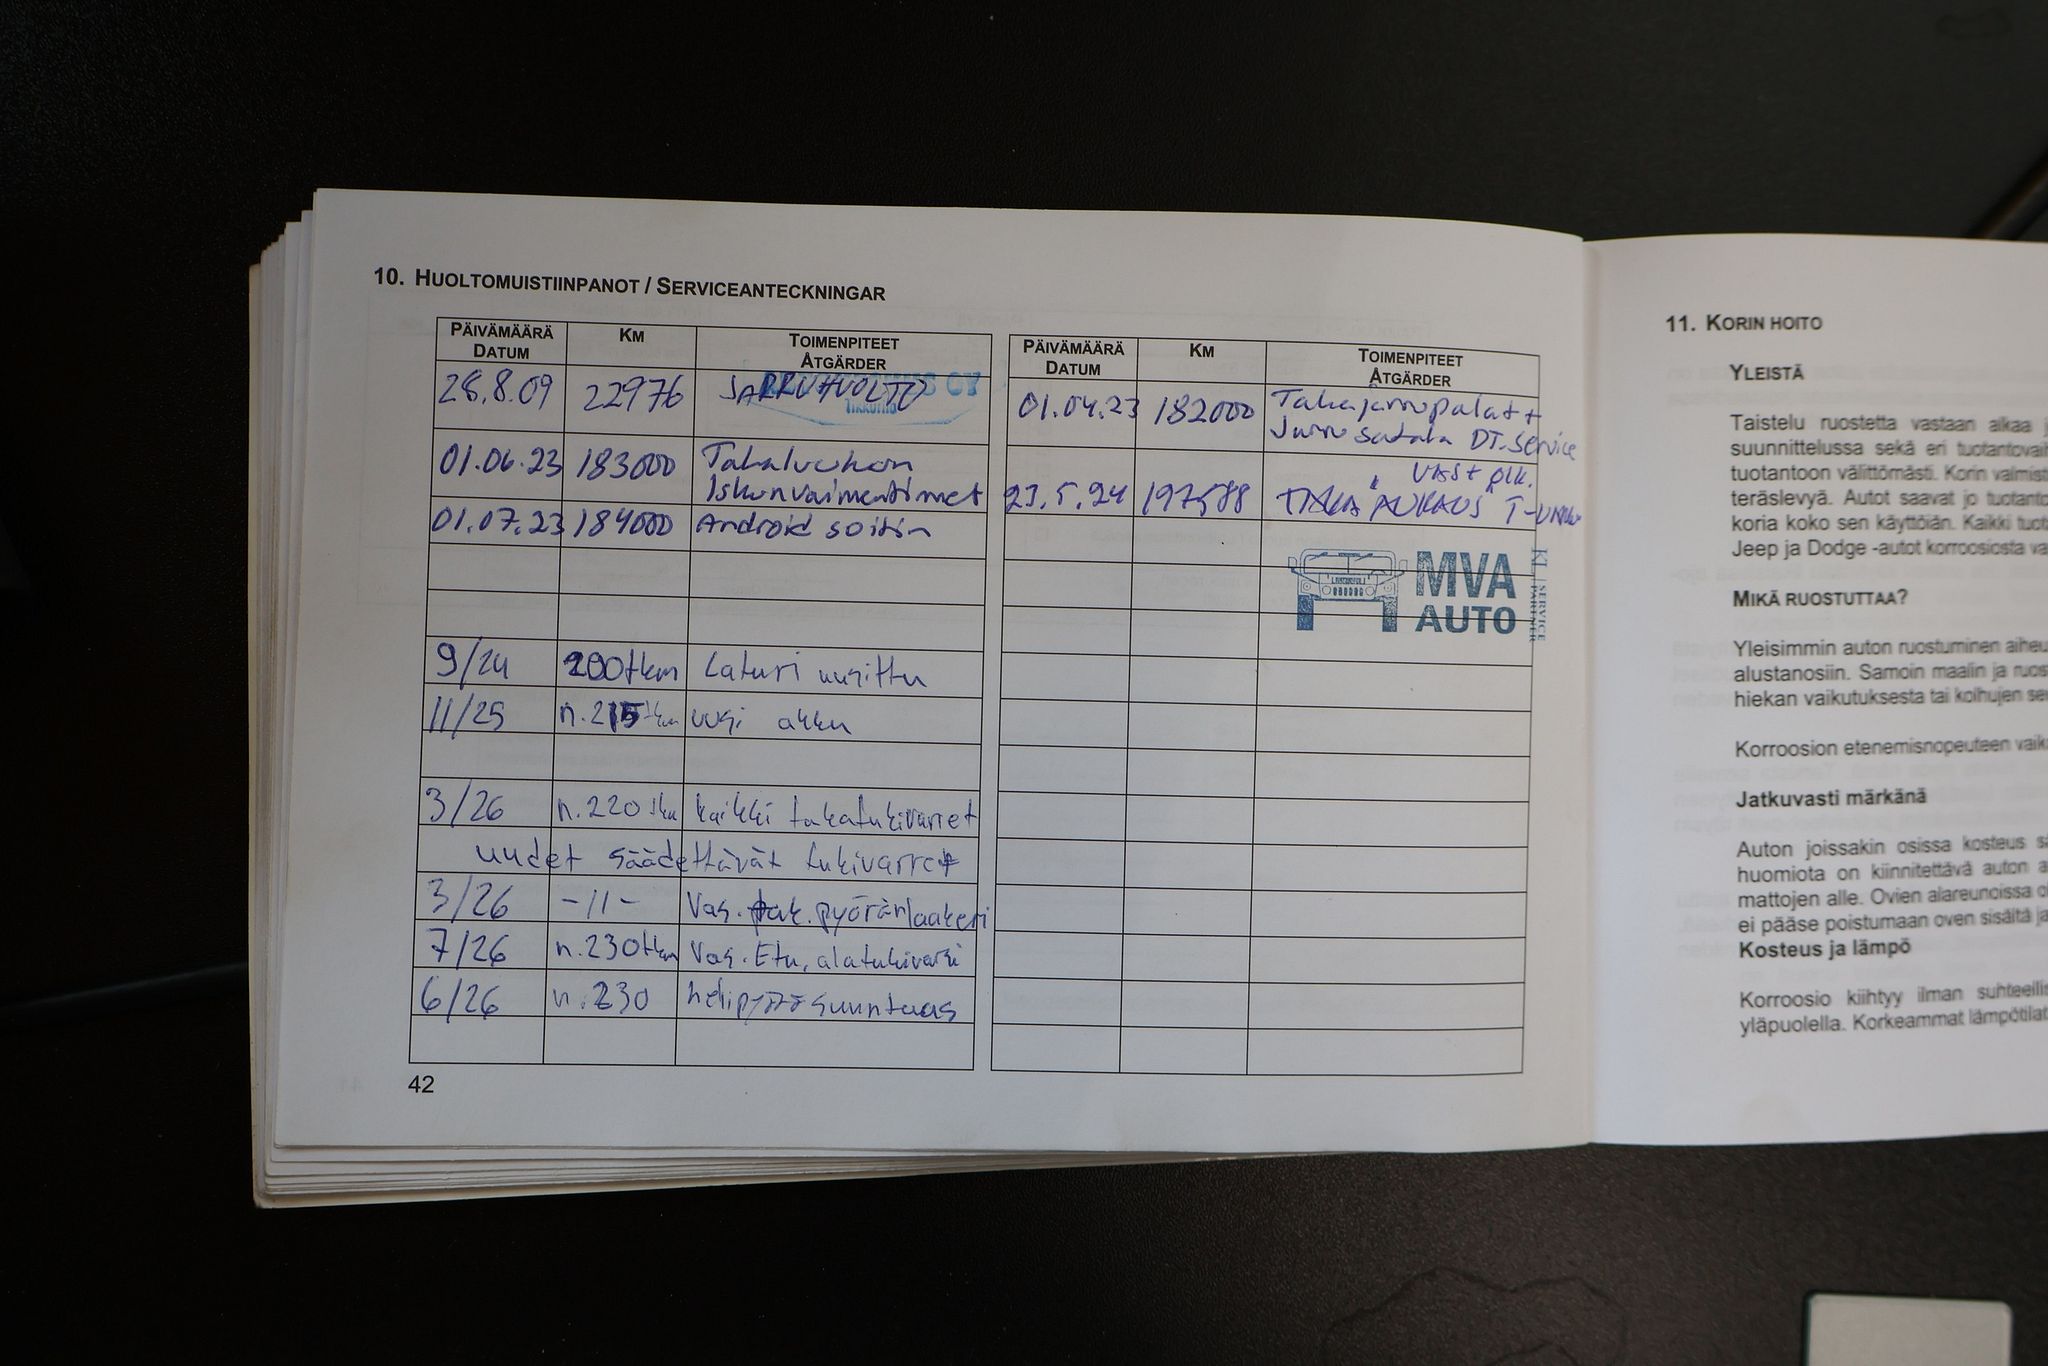 10. HUOLTOMUISTIINPANOT / SERVICEANTECKNINGAR
PÄIVÄMÄÄRÄ DATUM KM TOIMENPITEET ÅTGÄRDER
28.8.09 22976 JARRUHUOLTO
01.06.23 183000 Takaluukun
Iskunvaimentimet
01.07.23 184000 Android soitin
9/24 200tkm Laturi uusittu
11/25 n.215tkm uusi akku
3/26 n.220tkm kaikki takatukivarret
uudet säädettävät tukivarret
3/26 -11- Vas. tak. pyöränlaakeri
7/26 n.230tkm Vas. Etu. alatukivarsi
6/26 n.230 nelipyöräsuuntaus
42
PÄIVÄMÄÄRÄ DATUM KM TOIMENPITEET ÅTGÄRDER
01.04.23 182000 Takajarrupalat +
Jarrusatula DT-Service
Vast plk.
23.5.24 197588
MVA
AUTO
KL SERVICE
PARTNER
11. KORIN HOITO
YLEISTÄ
Taistelu ruostetta vastaan alkaa
suunnittelussa sekä eri
tuotantoon välittömästi. Korin
teräslevyä. Autot saavat jo
koria koko sen käyttöiän. Kaikki
Jeep ja Dodge -autot korroosiosta
MIKÄ RUOSTUTTAA?
Yleisimmin auton ruostuminen
alustanosiin. Samoin maalin ja
hiekan vaikutuksesta tai kolhujen
Korroosion etenemisnopeuteen
Jatkuvasti märkänä
Auton joissakin osissa kosteus
huomiota on kiinnitettävä auton
mattojen alle. Ovien alareunoissa
ei pääse poistumaan oven sisältä
Kosteus ja lämpö
Korroosio kiihtyy ilman
yläpuolella. Korkeammat